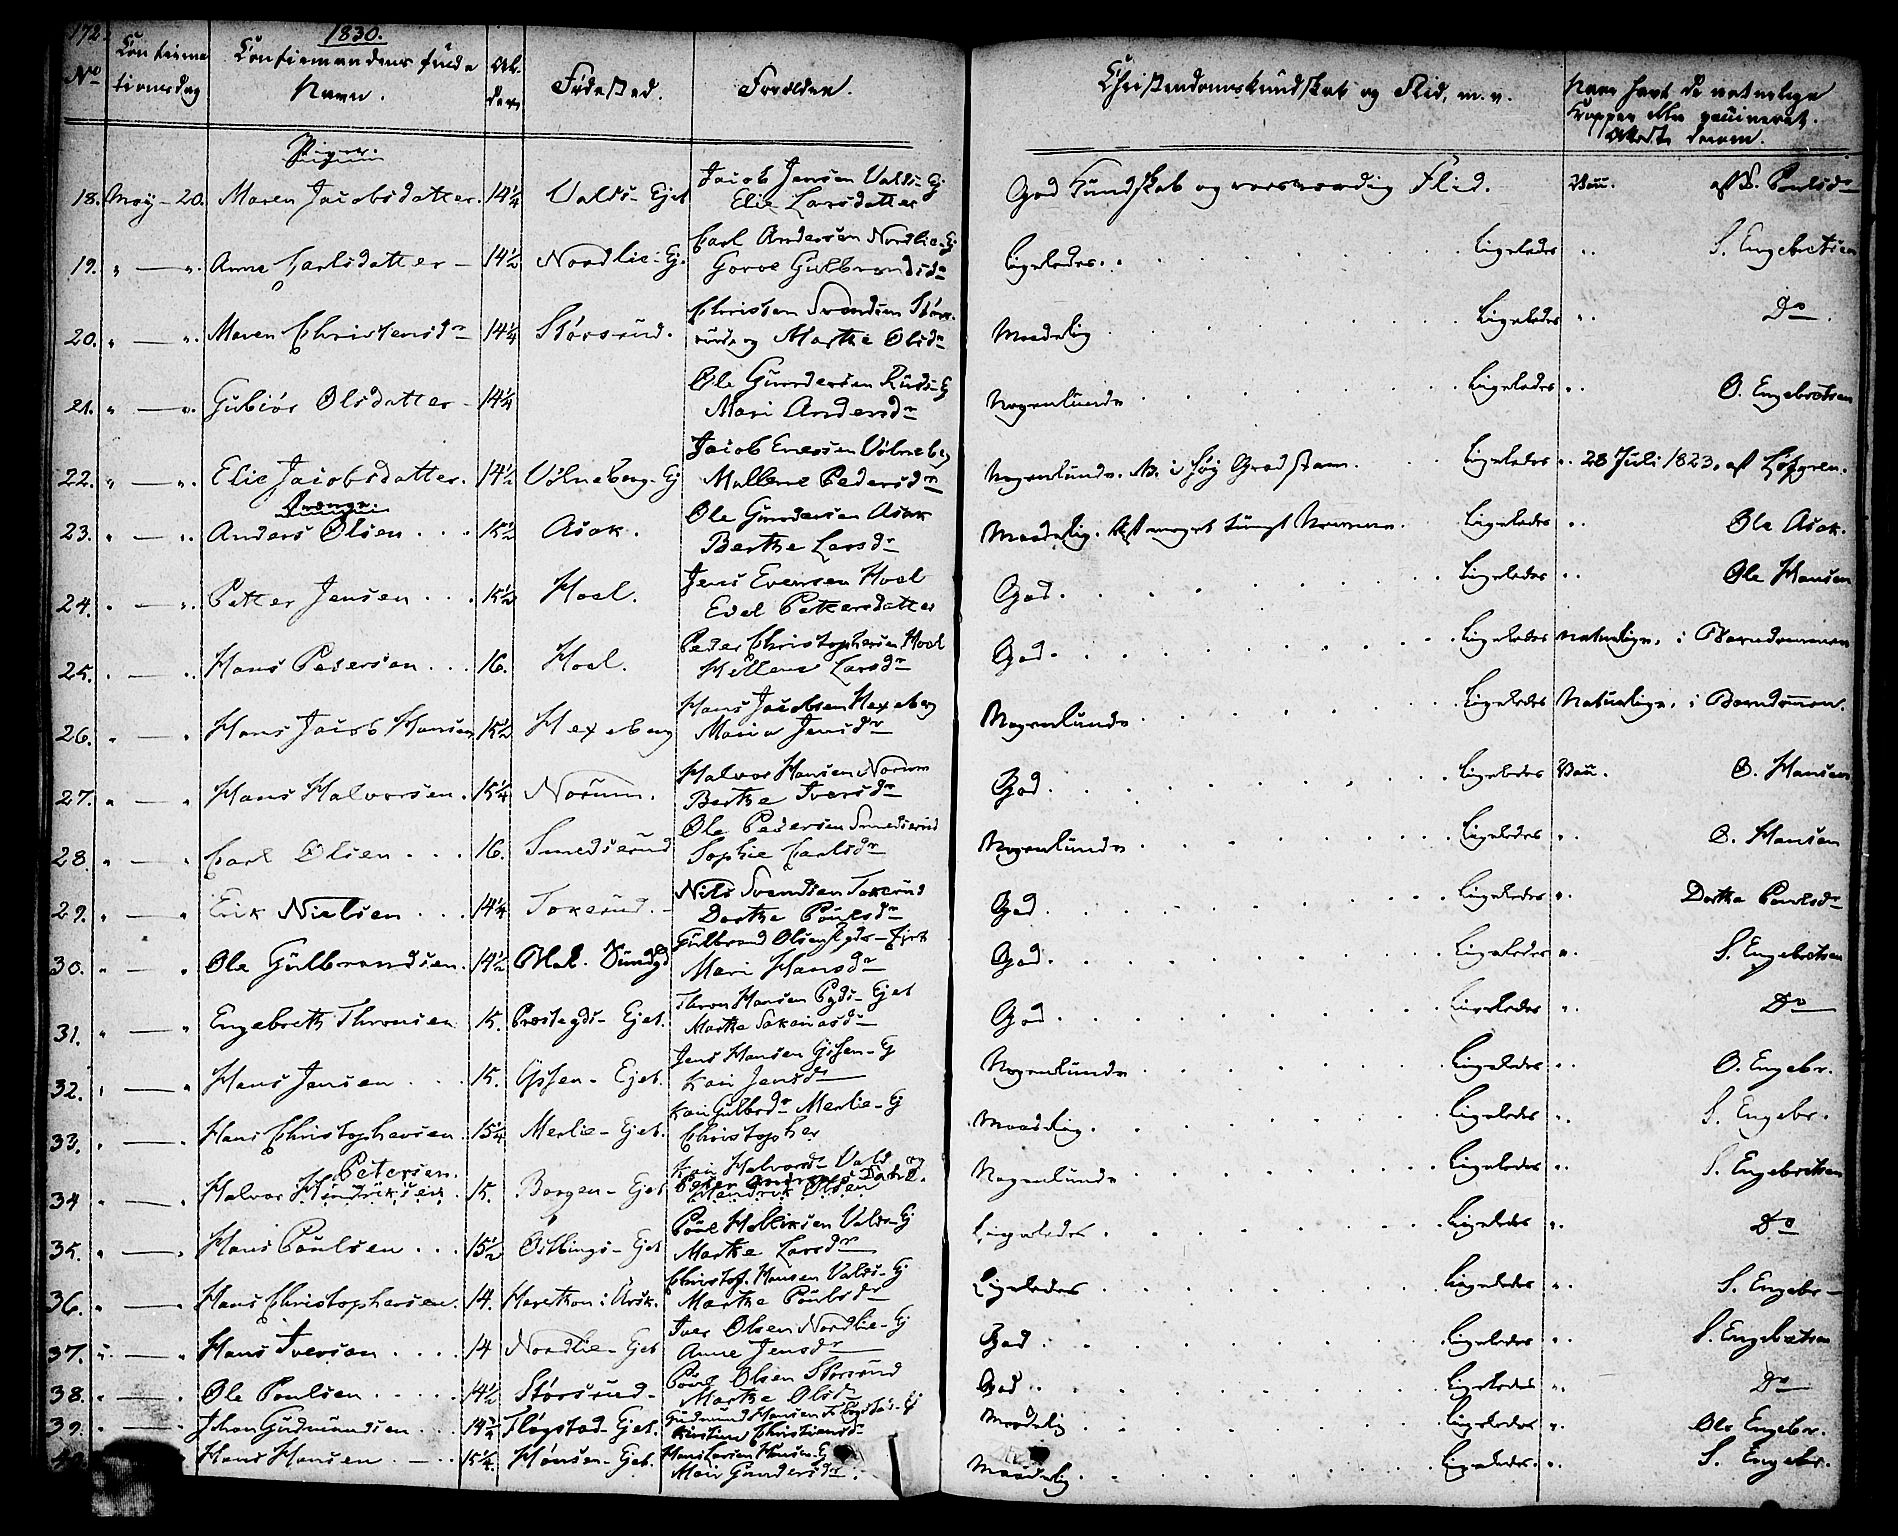 172.
1830.
No
Confirma
tionsdag
Confirmandens fulde
Navn.
Al-
der.
Fødested.
Forældre.
Christendomskundskab og Flid, m. v.
Naar havt de naturlige
Kopper eller vaccineret.
Attest derom.
Piger.
18. May - 20. Maren Jacobsdatter. 14¼ Valds - Ejet Jacob Jensen Valds - Ej
Elie Larsdatter God Kundskab og Flid. Vacc. af S. Poulsdr
19. " — ". Anne Carlsdatter - 14½ Nordlie - Ej. Carl Andersen Nordlie - Ej
Goroe Gulbrandsdr Ligeledes. Ligeledes ". S. Engebretsen
20. " — ". Maren Christensdr 14¼ Størsrud. Christen Svendsen Størs-
rud og Marthe Olsdr Maadelig Ligeledes ". Do.
21. " — ". Gubiør Olsdatter - 14¼ Ole Gundersen Ruds - Ej
Mari Andersdr Nogenlunde Ligeledes ". O. Engebretsen
22. " — ". Elie Jacobsdatter. 14½ Vølneberg - Ej Jacob Enersen Vølneberg
Mallene Pedersdr Nogenlunde. Ligeledes ". 28 Juli 1823. af Løfgren.
Drenge.
23. " — ". Anders Olsen . . . 15½ Asak. Ole Gundersen Asak
Berthe Larsdr Maadelig. Af meget tungt Nemme. Ligeledes ". Ole Asak.
24. " — ". Petter Jensen . . . 15½ Hoel. Jens Evensen Hoel
Edel Pettersdatter God. Ligeledes ". Ole Hansen
25. " — ". Hans Pedersen . . . 16. Hoel. Peder Christophersen Hoel
Hellene Larsdr God. Ligeledes Naturlige. i Barndommen
26. " — " Hans Jacob Hansen 15½ Hexeberg Hans Jacobsen Hexeberg
Maria Jensdr Nogenlunde Ligeledes Naturlige. i Barndommen.
27. " — " Hans Halvorsen. 15¼ Norum. Halvor Hansen Norum
Berthe Iversdr God. Ligeledes Vacc. O. Hansen
28. " — " Carl Olsen . . . 16. Smedserud Ole Pedersen Smedserud
Sophie Carlsdr Nogenlunde Ligeledes ". O. Hansen
29. " — " Erik Nielsen . . . 14¼ Tokerud. Nils Svendsen Tokerud
Dorthe Poulsdr God. Ligeledes ". Dorthe Poulsdr
30. " — " Ole Gulbrandsen. 14½ Gulbrand Olsen
Mari Hansdr God. Ligeledes ". S. Engebretsen
31. " — " Engebreth Thronsen 15. Præstegds - Ejet. Thron Hansen Pgds - Ejet
Marthe God. Ligeledes ". Do
32. " — " Hans Jensen . . . 15. Gissen - Ejet. Jens Hansen Gissen - Ej
Kari Jensdr Nogenlunde Ligeledes ". O. Engebr.
33. " — " Hans Christophersen. 15¼ Merlie - Ejet. Kari Gulbrdr Merlie - Ej
Christopher Maadelig. Ligeledes ". S. Engebr.
34 " — " Halvor Hindriksen Petersen. 15. Borgen - Ejet Kari Halvorsdr Vald og
Hendrik Olsen Nogenlunde Ligeledes ". S. Engebretsen
35. " — " Hans Poulsen . . . 15½ Østbings - Ejet Poul Valds - Ej
Marthe Larsdr Ligeledes . Ligeledes ". Do
36. " — " Hans Christophersen. 14. Christof. Hansen Valds - Ej
Marthe Poulsdr Ligeledes . Ligeledes ". S. Engebr -
37. " — " Hans Iversen . . . . 14 Nordlie - Ejet Iver Olsen Nordlie - Ej
Anne Jensdr God . Ligeledes ". S. Engebretsen
38. " — " Ole Poulsen . . . . . 14½ Størsrud - Poul Olsen Størsrud
Marthe Olsdr God . Ligeledes ". Do
39. " — " Johan Gudmundsen . . . 14¾ Fløgstad - Ejet. Gudmund Hansen Fløgstad - Ej
Kirstine Christiansdr Maadelig Ligeledes ". Ole Engebr.
40 Hans Hansen . — . 15¼. Hønsen - Ejet. Hans Larsen Hønsen - Ej
Mari Gundersdr. Maadelig . Ligeledes. ". S. Engebr.